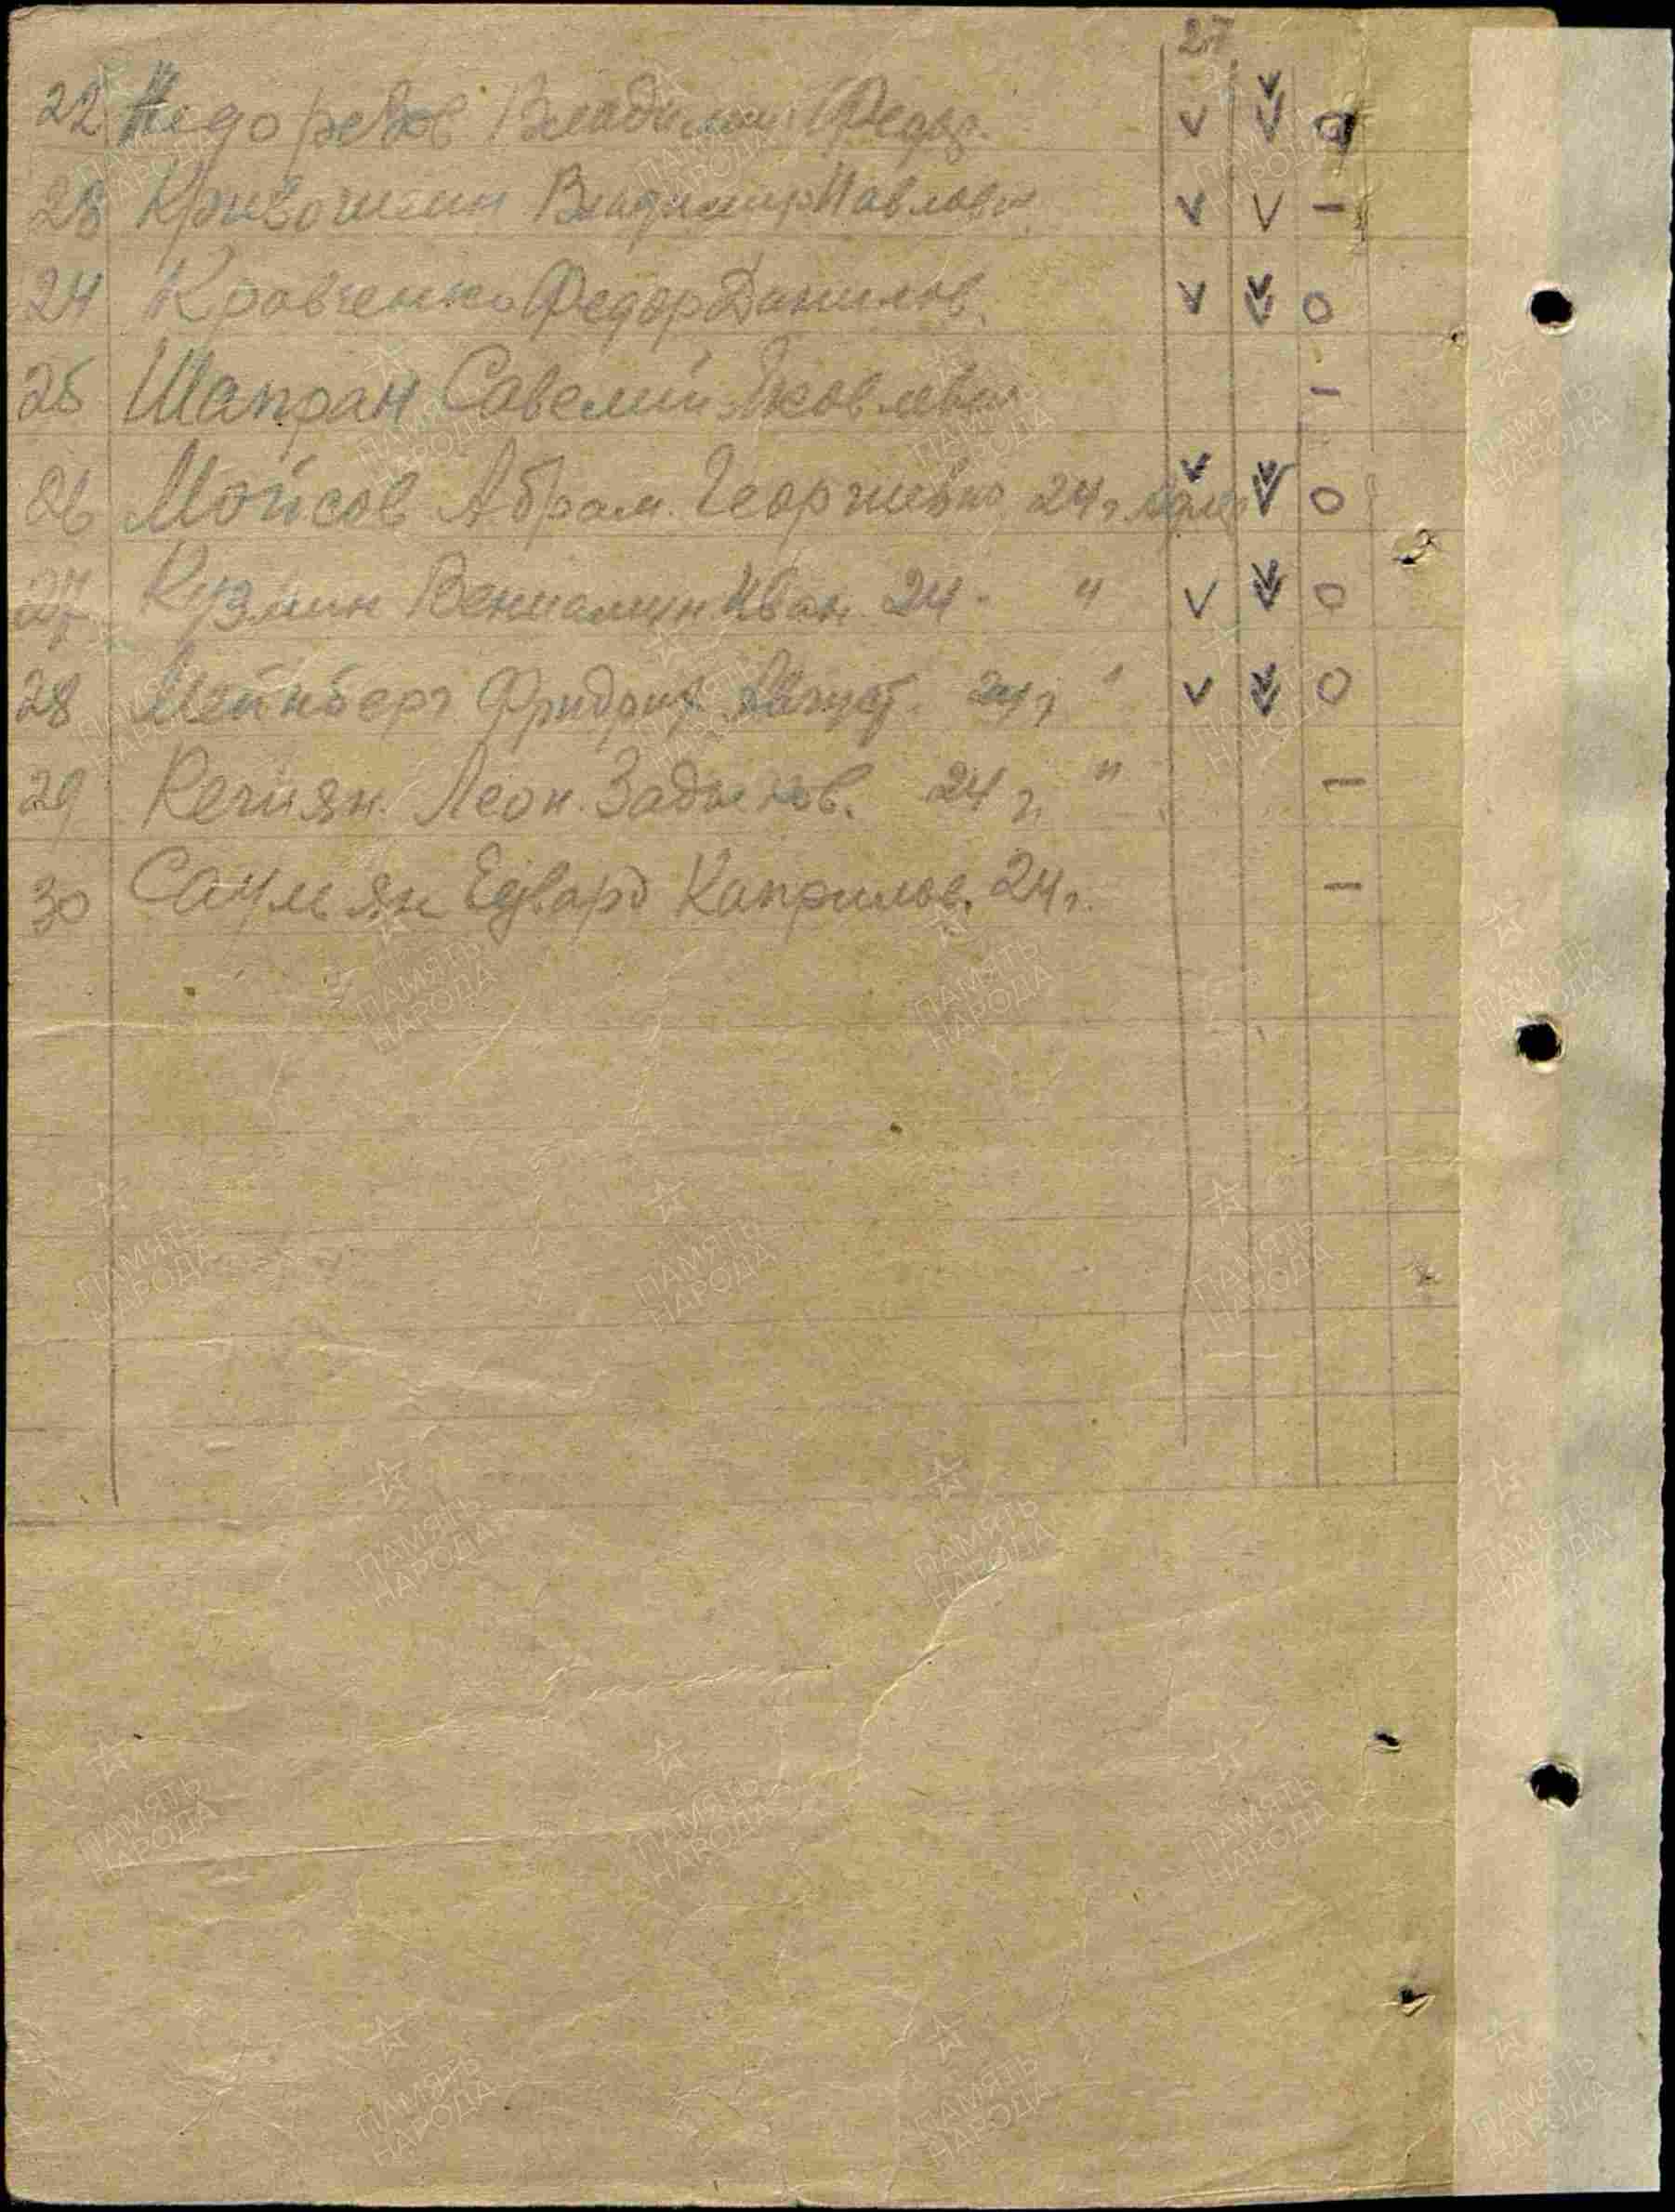 27
22 Недорезов Владимир Федор.
23 Кривошеин Владимир Павлов
24 Кравченко Федор Данилов.
25 Шапран Савелий Яковлевич
26 Мойсов Абрам. Георгиевич 24 г.
27 Кузмин Вениамин Иван. 24 - "
28 Мейнберг Фридрих Август. 24 г. "
29 Речиян. Леон. Задыков. 24 г. "
30 Саумьян Едвард Каприлов. 24 г.
ПАМЯТЬ НАРОДА